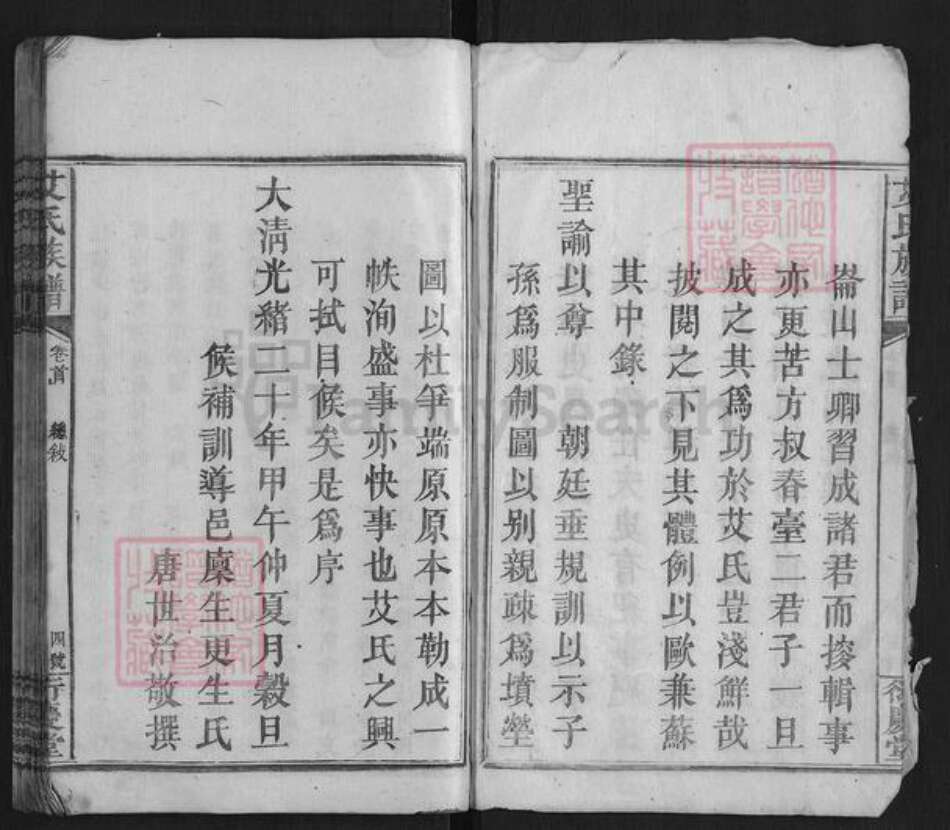 崙山士卿習成諸君而接輯事
亦更苦方叔春臺二君子一旦
成之其爲功於艾氏豈淺鮮哉
披閱之下見其體例以歐兼蘇
其中錄
聖諭以尊 朝廷垂規訓以示子
孫爲服制圖以别親疎爲墳塋
圖以杜爭端原原本本勒成一
帙洵盛事亦快事也艾氏之興
可拭目候矣是爲序
大清光緒二十年甲午仲夏月穀旦
候補訓導邑廩生更生氏
唐世治敬撰
艾氏族譜
卷首
總敘
四號
FamilySearch